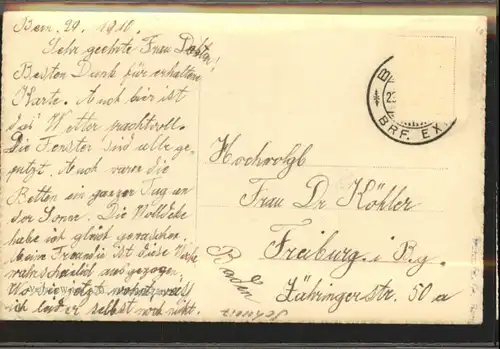 Bern. 29. 1910.
Sehr geehrte Frau Doktor!
Besten Dank für erhaltene
Karte. Auch hier ist
das Wetter prachtvoll.
Die Fenster sind alle ge-
putzt. Auch waren die
Betten ein ganzer Tag an
der Sonne. Die Wolldecke
habe ich gleich gewaschen.
Meine Freundin ist diese Woche
wahrscheinlich ausgezogen.
Wo sie jetzt wohnt, weiß
ich leider selbst noch nicht.
BRF. EX
Hochwolgb
Frau Dr Köhler
Freiburg i. Bg.
Baden
Zähringerstr. 50 a
Schweiz